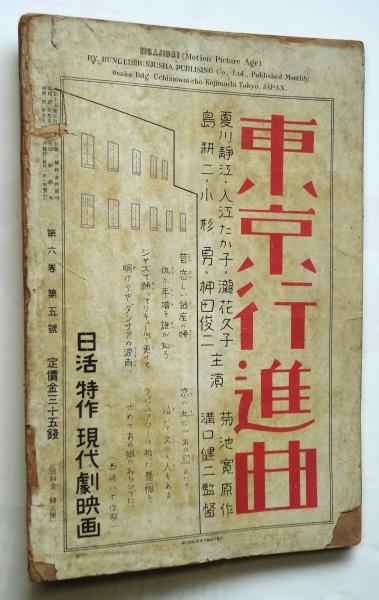 EIGAJIDAI (Motion Picture Age)
BY BUNGEISHUNJUSHA PUBLISING Co., Ltd., Published Monthly.
Osaka Bldg. Uchisaiwai-cho Kojimachi Tokyo, JAPAN.
東京行進曲
菊池寛原作
溝口健二監督
夏川靜江・入江たか子・瀧花久子
島耕二・小杉勇・神田俊二 主演
昔恋しい銀座の柳
仇な年増を誰が知ろ
ジャズで踊ってリキュルで更けて
明けりゃダンサアの涙雨
恋の丸ビルあの窓あたり
泣いて文かく人もある
ラッシュアワーに拾た薔薇を
せめてあの娘の思ひ出に
西條八十作歌
日活特作現代劇映画
第六卷 第五號 定價金三十五錢